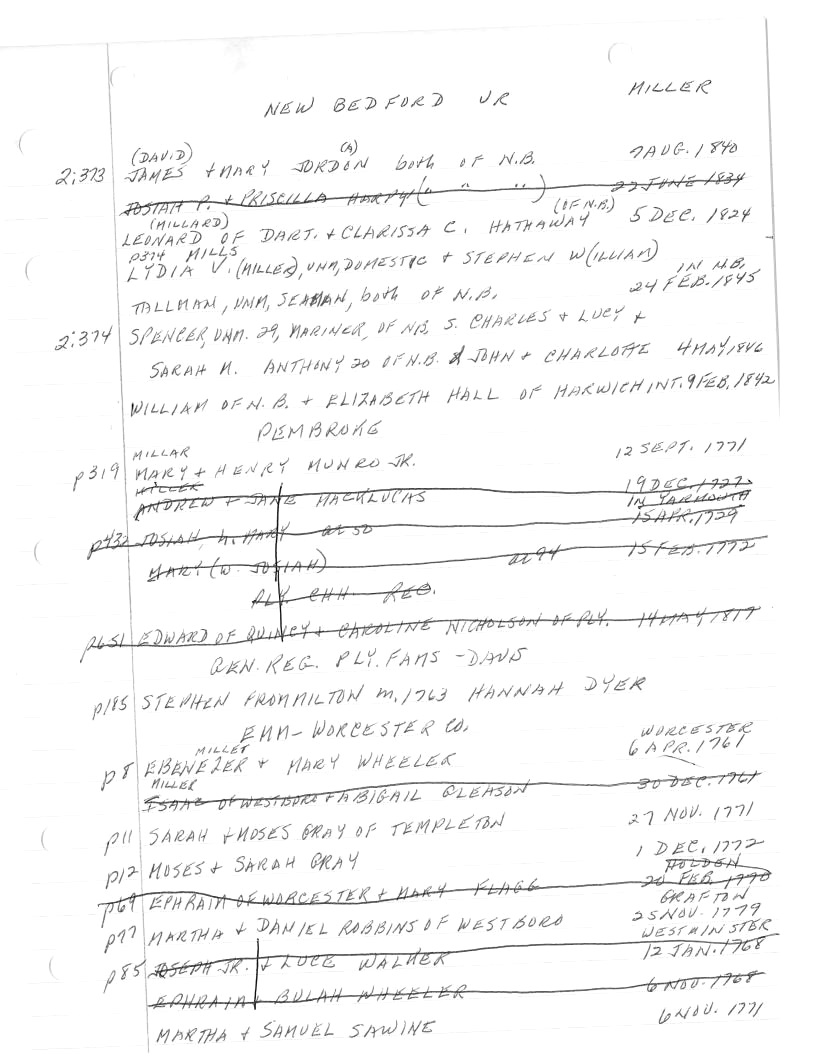 NEW BEDFORD VR MILLER
(DAVID) (A)
2:373 JAMES + MARY JORDON both OF N.B. 7 AUG. 1840
JOSIAH P. + PRISCILLA HARDY (" " ") 22 JUNE 1834
(MILLARD) (OF N.B.)
LEONARD OF DART. + CLARISSA C. HATHAWAY 5 DEC. 1824
p374 MILLS
LYDIA V. (MILLER), UNM, DOMESTIC + STEPHEN W(ILLIAM) IN N.B.
TALLMAN, UNM, SEAMAN, both OF N.B. 24 FEB. 1845
2:374 SPENCER, UNM. 29, MARINER, OF NB, S. CHARLES + LUCY +
SARAH M. ANTHONY 20 OF N.B. d JOHN + CHARLOTTE 4 MAY, 1846
WILLIAM OF N.B. + ELIZABETH HALL OF HARWICH INT. 9 FEB, 1842
PEMBROKE
MILLAR
p319 MARY + HENRY MUNRO JR. 12 SEPT. 1771
MILLER
ANDREW + JANE MACKLUCAS 19 DEC. 1727
IN YARMOUTH
p432 JOSIAH, h. MARY ae 50 15 APR. 1729
MARY (W. JOSIAH) ae 94 15 FEB. 1772
PLY. CHH. REC.
p651 EDWARD OF QUINCY + CAROLINE NICHOLSON OF PLY. 14 MAY 1817
GEN. REG. PLY. FAMS - DAVIS
p185 STEPHEN FROM MILTON m. 1763 HANNAH DYER
EMM - WORCESTER CO.
MILLET WORCESTER
p8 EBENEZER + MARY WHEELER 6 APR. 1761
MILLER
ISAAC OF WESTBORO + ABIGAIL GLEASON 30 DEC. 1761
p11 SARAH + MOSES GRAY OF TEMPLETON 27 NOV. 1771
p12 MOSES + SARAH GRAY 1 DEC, 1772
HOLDEN
p69 EPHRAIM OF WORCESTER + MARY FLAGG 20 FEB. 1770
GRAFTON
p77 MARTHA + DANIEL ROBBINS OF WESTBORO 25 NOV. 1779
WESTMINSTER
p85 JOSEPH JR. + LUCE WALKER 12 JAN. 1768
EPHRAIM + BULAH WHEELER 6 NOV. 1768
MARTHA + SAMUEL SAWINE 6 NOV. 1771